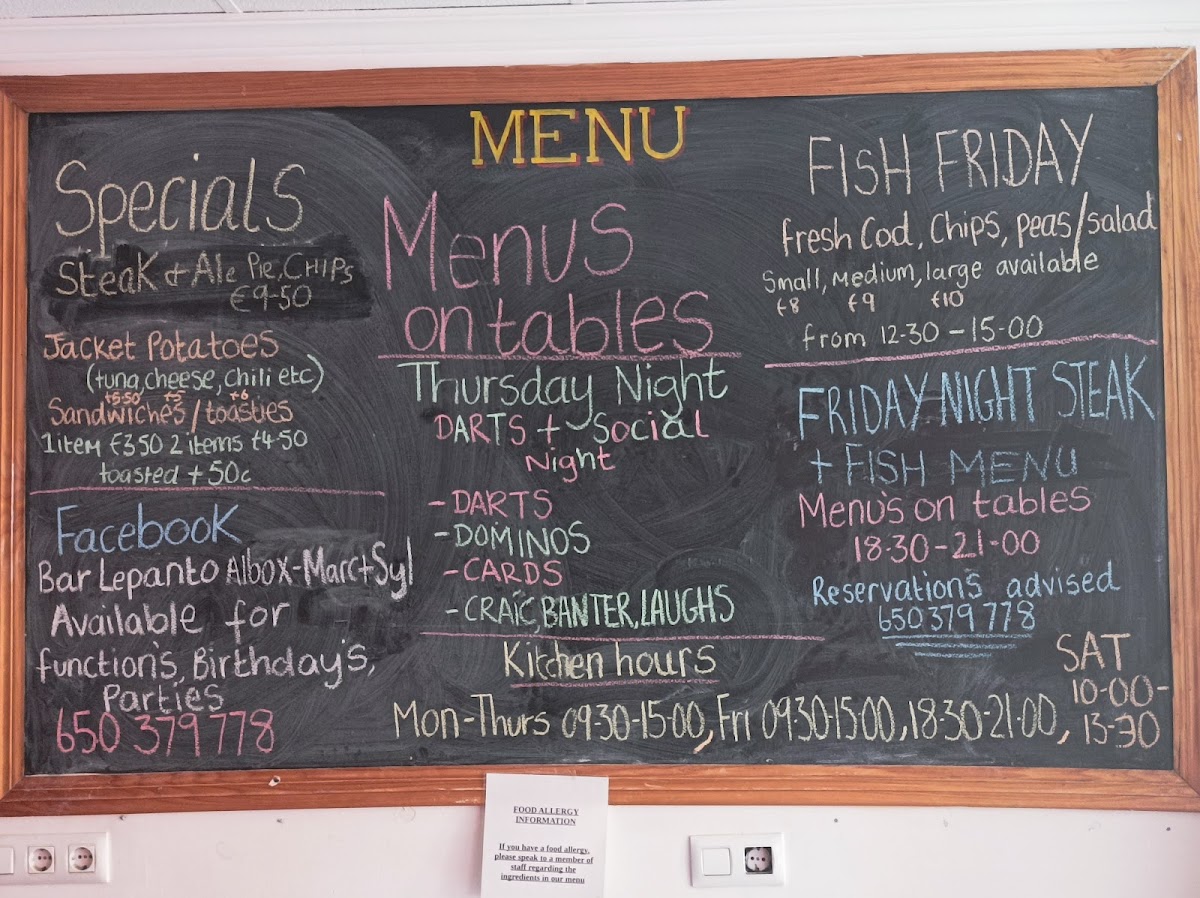 MENU
Specials
Steak & Ale Pie, CHIPS
€9-50
Jacket Potatoes
(tuna, cheese, chili etc)
€5-50 €5 €6
Sandwiches/toasties
1item €350 2 items €4-50
toasted +50c
Facebook
Bar Lepanto Albox-Marc+Syl
Available for
function's, Birthday's,
Parties
650 379 778
Menus
on tables
Thursday Night
DARTS + Social
Night
- DARTS
- DOMINOS
- CARDS
- CRAIC, BANTER, LAUGHS
Kitchen hours
Mon-Thurs 09-30-15-00, Fri 09-30-15-00, 18-30-21-00,
SAT
10-00-
13-30
FISH FRIDAY
fresh Cod, Chips, peas/salad
Small, Medium, large available
€8 €9 €10
from 12-30 - 15-00
FRIDAY NIGHT STEAK
+ FISH MENU
Menu's on tables
18-30-21-00
Reservation's advised
650 379 778
FOOD ALLERGY
INFORMATION
If you have a food allergy,
please speak to a member of
staff regarding the
ingredients in our menu